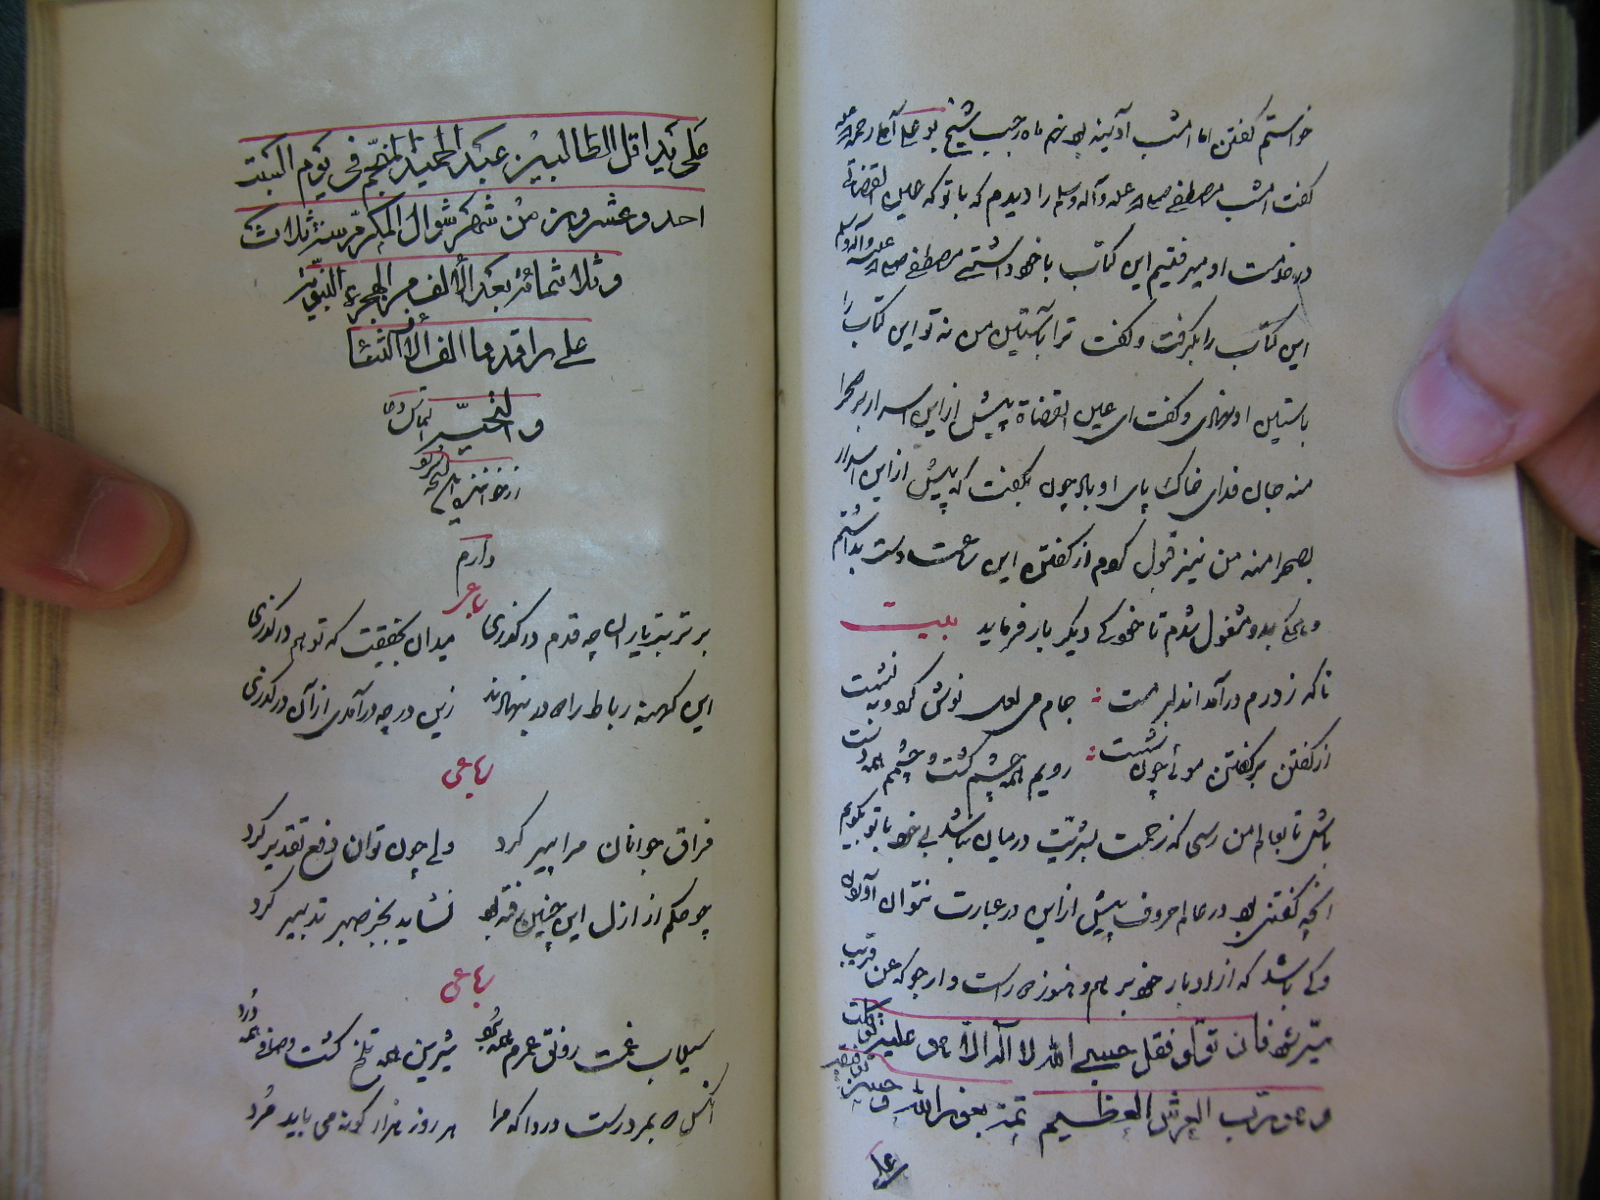 خواستم گفتن اما امشب آدینه بود نهم ماه رجب شیخ بو علی آملی رحمه الله
گفت امشب مصطفی صلی الله علیه وآله وسلم را دیدم که با تو که عین القضاتی
در خدمت او میرفتیم این کتاب با خود داشتی مصطفی صلی الله علیه وآله وسلم
این کتاب را بگرفت و گفت ترا بآستین من نه تو این کتاب را
بآستین او نهادی و گفت ای عین القضاة پیش از این اسرار بر صحرا
منه جان فدای خاک پای او باد چون بگفت که پیش از این اسرار
بصحرا منه من نیز قبول کردم از گفتن این ساعت دست بداشتم
و همگی بدو مشغول شدم تا خود کی دیگر بار فرماید بیت
ناگه ز درم درآمد آن دلبر مست جام می لعل نوش کرد و بنشست
از گفتن بر گفتن موئی چون شست رویم همه چشم گشت و چشمم همه دست
باش تا بعالم من رسی که زحمت بشریت در میان نباشد بی خود با تو بگویم
آنچه گفتنی بود در عالم حروف پیش از این در عبارت نتوان آوردن
وکی باشد که از ادبار خود بر هم و هنوز می راست وارجو که عن قریب
میسر شود فان تولوا فقل حسبی الله لا اله الا هو علیه توکلت
و هو رب العرش العظیم تمت بعون الله و حسن توفیقه
علی
علی ید اقل الطالبین عبد الحمید المنجم فی یوم السبت
احد وعشرون من شهر شوال المکرم سنه ثلاث
وثلاثمائه بعد الألف من الهجره النبویه
علی راقدها الف الآف الثناء
والتحیه التماس دعا
از خواننده این نسخه
دارم
رباعی
بر تربت یاران چه قدم درگذری میدان بحقیقت که تو هم درگذری
این کهنه رباط را دو در بنهادند زین در چه درآمدی از آن درگذری
رباعی
فراق جوانان مرا پیر کرد ولی چون توان دفع تقدیر کرد
چو حکم از ازل این چنین رفته بود نشاید بجز صبر تدبیر کرد
رباعی
سیلاب غمت رونق عمرم همه برد شیرین همه تلخ گشت وصافی همه درد
آنکس که بمرد رست دردا که مرا هر روز هزار گونه می باید مرد